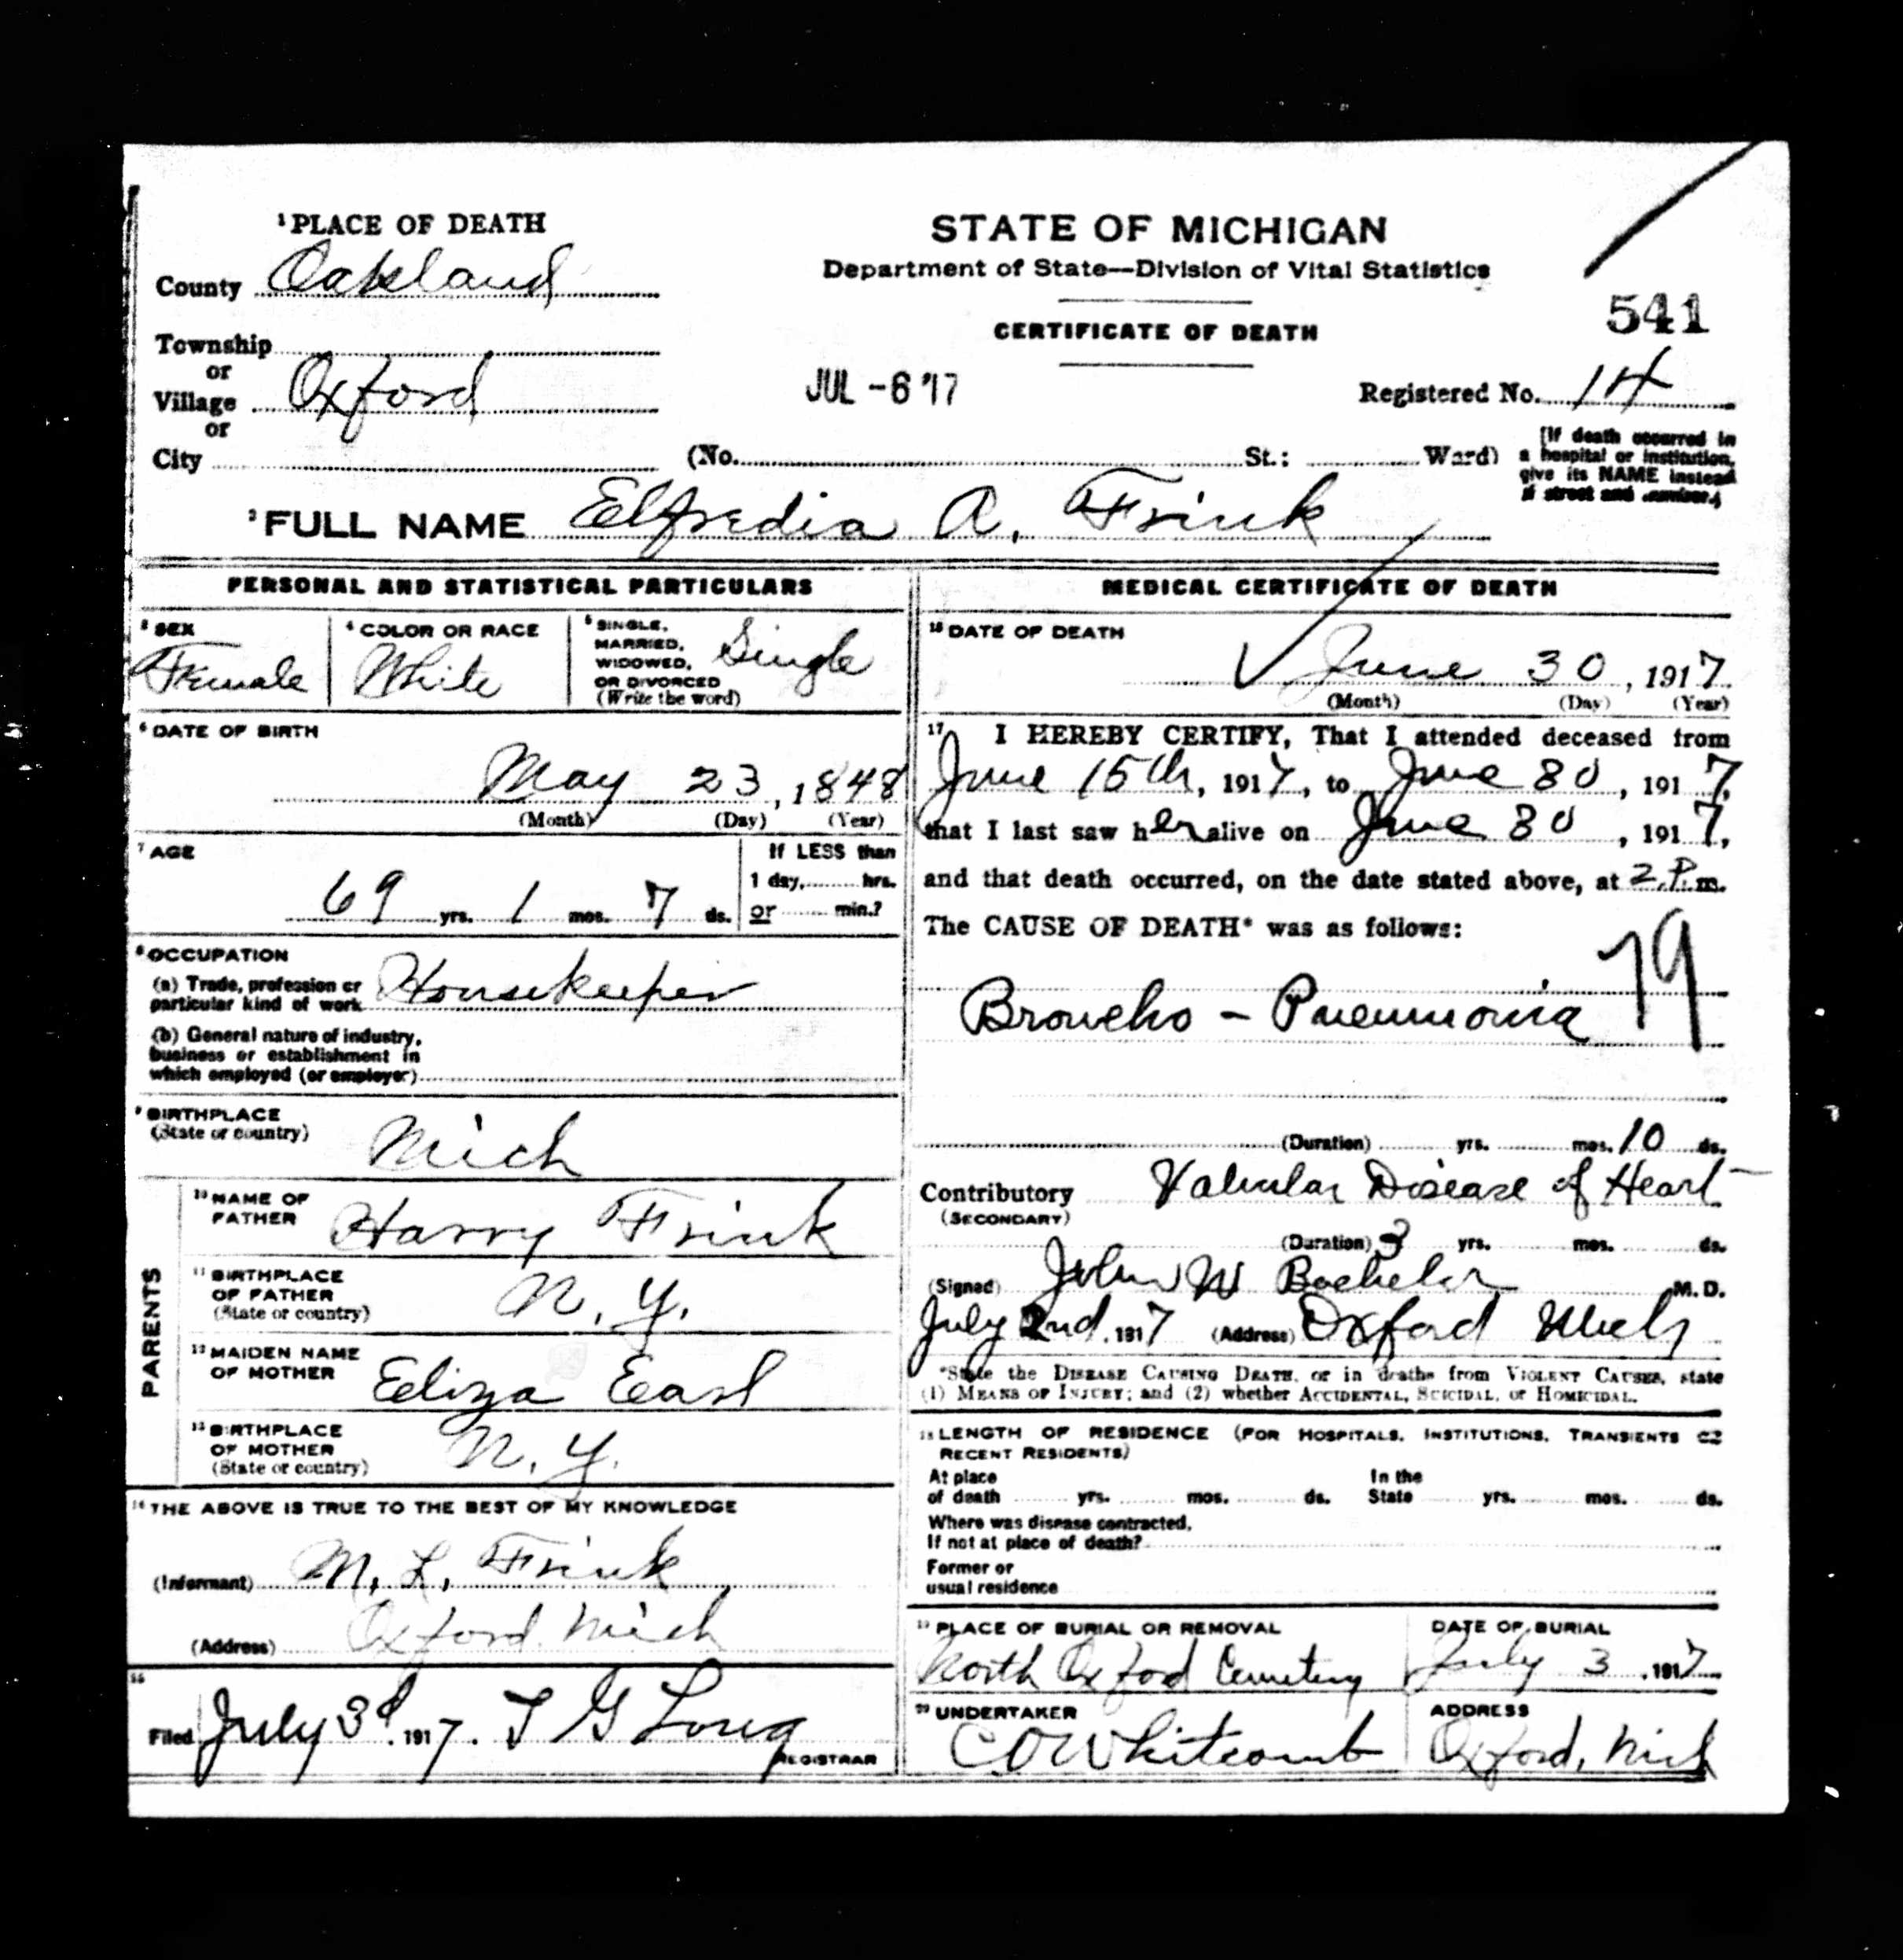 ¹PLACE OF DEATH
STATE OF MICHIGAN
Department of State—Division of Vital Statistics
County Oakland
541
CERTIFICATE OF DEATH
Township
or
Village Oxford
JUL -6 '17
Registered No. 14
or
City (No. St.; Ward)
[If death occurred in
a hospital or institution,
give its NAME instead
of street and number.]
²FULL NAME Elfredia A. Frink
PERSONAL AND STATISTICAL PARTICULARS
³ SEX
Female
⁴ COLOR OR RACE
White
⁵ SINGLE,
MARRIED,
WIDOWED,
OR DIVORCED
(Write the word)
Single
⁶ DATE OF BIRTH
May 23, 1848
(Month) (Day) (Year)
⁷ AGE
69 yrs. 1 mos. 7 ds.
If LESS than
1 day, hrs.
or min.?
⁸ OCCUPATION
(a) Trade, profession or
particular kind of work Housekeeper
(b) General nature of industry,
business or establishment in
which employed (or employer)
⁹ BIRTHPLACE
(State or country)
Mich
PARENTS
¹⁰ NAME OF
FATHER
Harry Frink
¹¹ BIRTHPLACE
OF FATHER
(State or country)
N. Y.
¹² MAIDEN NAME
OF MOTHER
Eliza East
¹³ BIRTHPLACE
OF MOTHER
(State or country)
N. Y.
¹⁴ THE ABOVE IS TRUE TO THE BEST OF MY KNOWLEDGE
(Informant) M. L. Frink
(Address) Oxford Mich
¹⁵
Filed July 3d, 1917. T G Long
REGISTRAR
MEDICAL CERTIFICATE OF DEATH
¹⁶ DATE OF DEATH
June 30, 1917
(Month) (Day) (Year)
¹⁷ I HEREBY CERTIFY, That I attended deceased from
June 15th, 1917, to June 30, 1917,
that I last saw her alive on June 30, 1917,
and that death occurred, on the date stated above, at 2 P. m.
The CAUSE OF DEATH* was as follows:
79
Broncho - Pneumonia
(Duration) yrs. mos. 10 ds.
Contributory Valvular Disease of Heart
(SECONDARY)
(Duration) 3 yrs. mos. ds.
(Signed) John W Bachelor M. D.
July 2nd, 1917 (Address) Oxford Mich
*State the DISEASE CAUSING DEATH, or in deaths from VIOLENT CAUSES, state
(1) MEANS OF INJURY; and (2) whether ACCIDENTAL, SUICIDAL, or HOMICIDAL.
¹⁸ LENGTH OF RESIDENCE (FOR HOSPITALS, INSTITUTIONS, TRANSIENTS OR
RECENT RESIDENTS)
At place
of death yrs. mos. ds.
In the
State yrs. mos. ds.
Where was disease contracted,
If not at place of death?
Former or
usual residence
¹⁹ PLACE OF BURIAL OR REMOVAL
North Oxford Cemetery
DATE OF BURIAL
July 3, 1917
²⁰ UNDERTAKER
C.O. Whitcomb
ADDRESS
Oxford, Mich